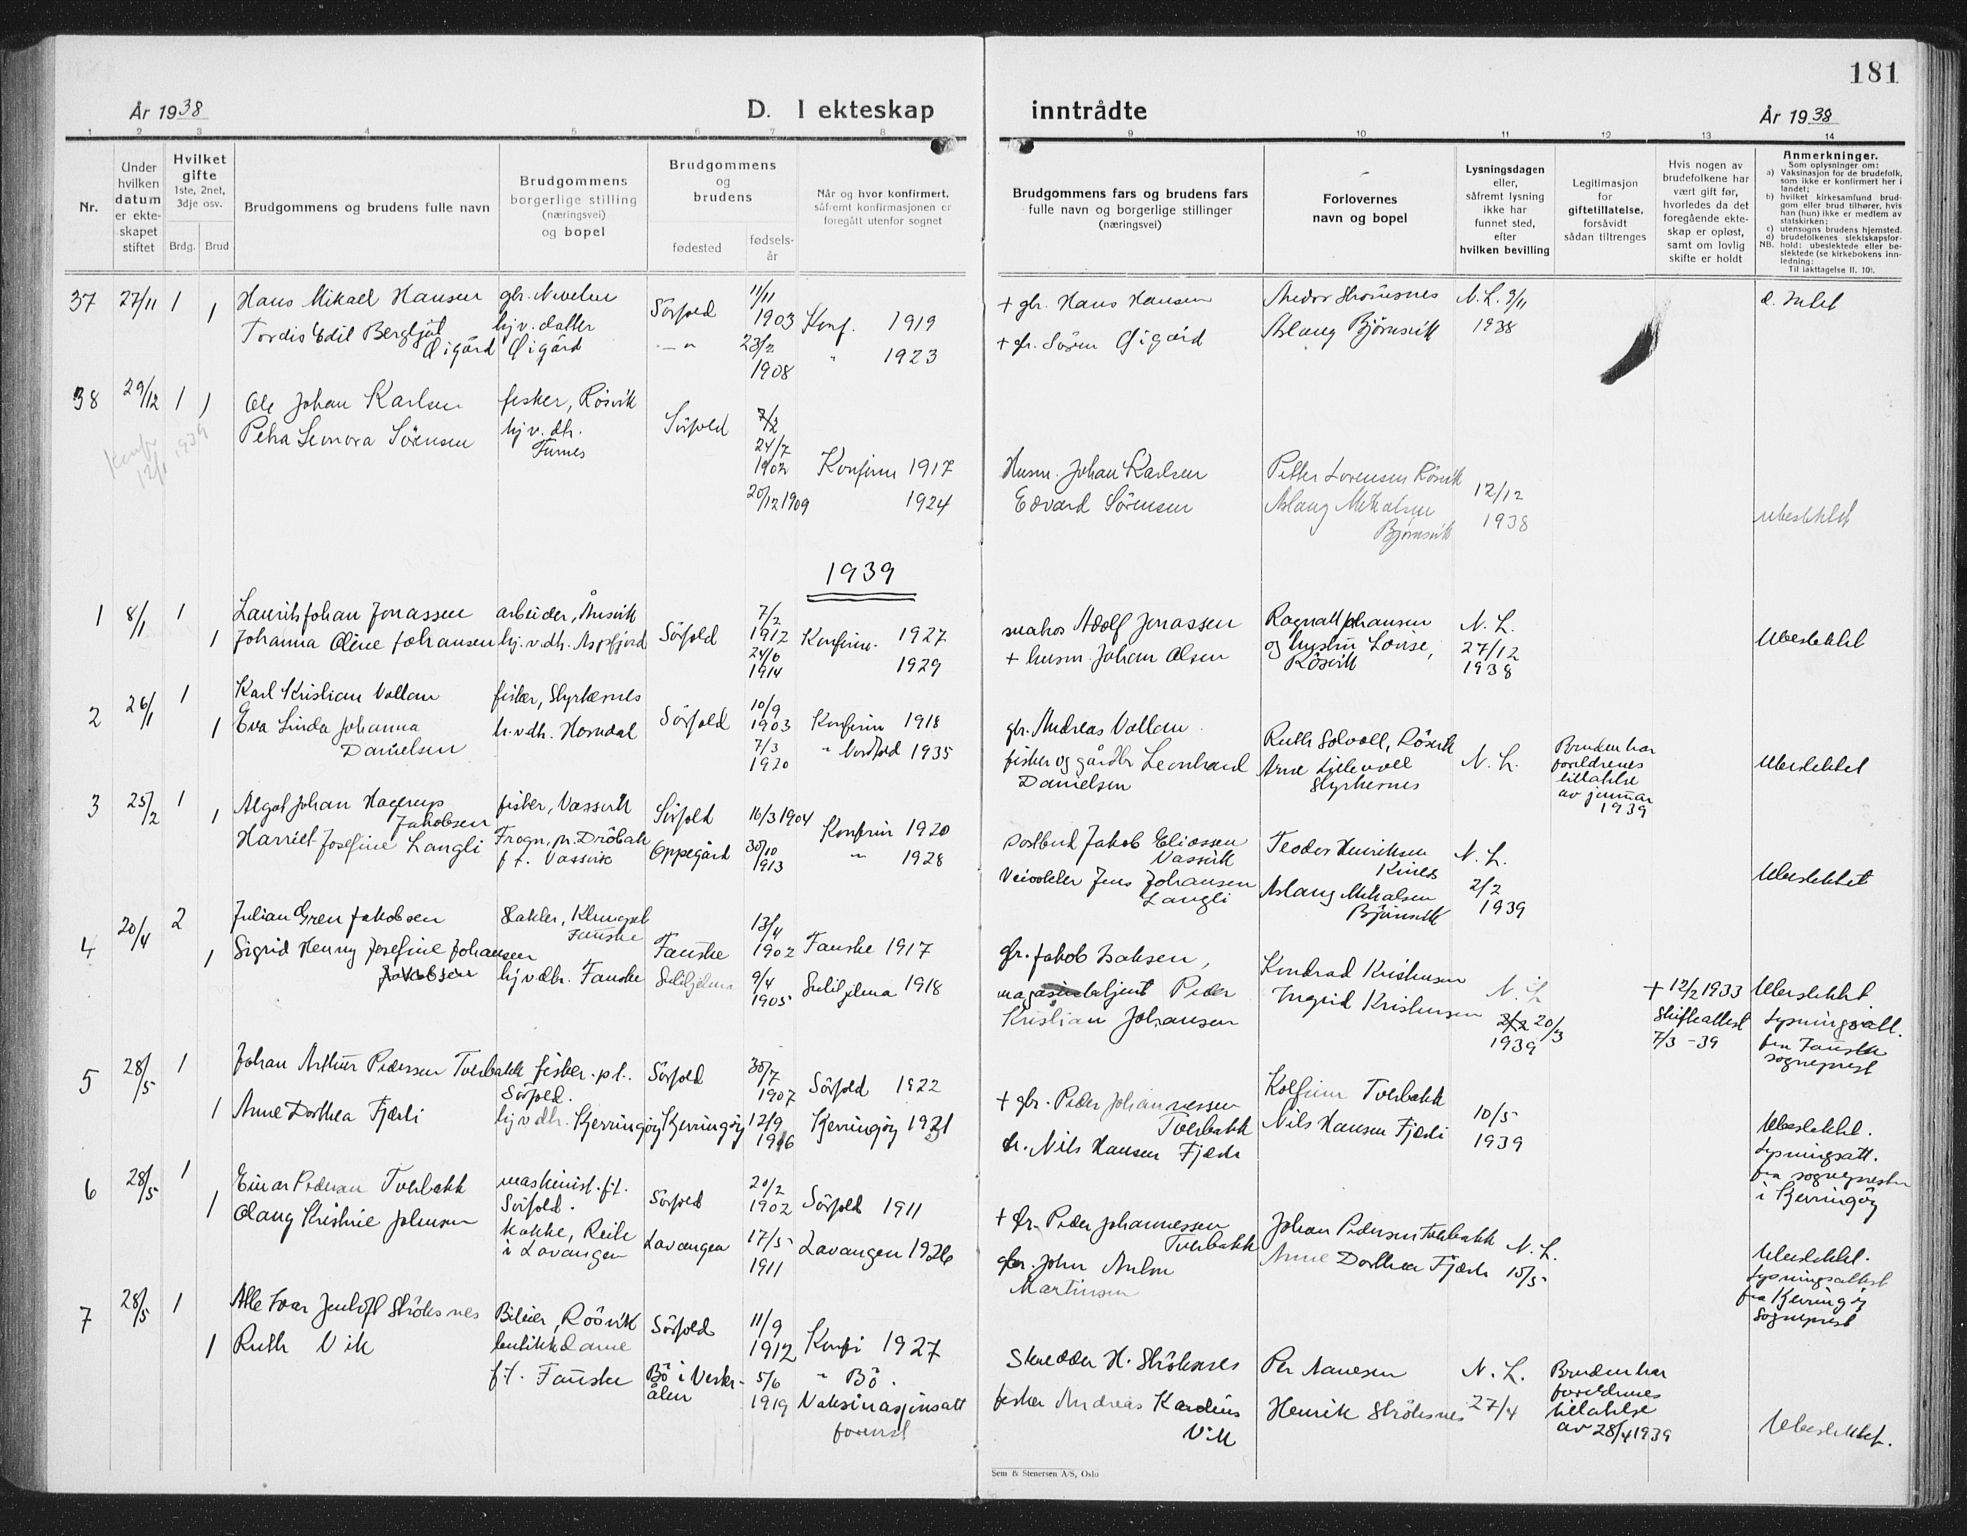 181
År 1938
D. I ekteskap
inntrådte
År 1938
1 2 3 4 5 6 7 8 9 10 11 12 13 14
Nr.
Under
hvilken
datum
er ekte-
skapet
stiftet
Hvilket
gifte
1ste, 2net,
3dje osv.
Brdg. Brud
Brudgommens og brudens fulle navn
Brudgommens
borgerlige stilling
(næringsvei)
og bopel
Brudgommens
og
brudens
fødested
fødsels-
år
Når og hvor konfirmert,
såfremt konfirmasjonen er
foregått utenfor sognet
Brudgommens fars og brudens fars
fulle navn og borgerlige stillinger
(næringsvei)
Forlovernes
navn og bopel
Lysningsdagen
eller,
såfremt lysning
ikke har
funnet sted,
efter
hvilken bevilling
Legitimasjon
for
giftetillatelse,
forsåvidt
sådan tiltrenges
Hvis nogen av
brudefolkene har
vært gift før,
hvorledes da det
foregående ekte-
skap er opløst,
samt om lovlig
skifte er holdt
Anmerkninger.
Som oplysninger om:
a) Vaksinasjon for de brudefolk,
som ikke er konfirmert her i
landet;
b) hvilket kirkesamfund brud-
gom eller brud tilhører, hvis
han (hun) ikke er medlem av
statskirken;
c) utensogns brudens hjemsted.
d) brudefolkenes slektskapsfor-
NB. hold: ubeslektede eller be-
slektede (se kirkebokens inn-
ledning:
Til iakttagelse II. 10).
37 27/11 1 Hans Mikael Hansen
1 Tordis Edil Bergljot
Øigård
hjv. datter
Øigård
Sörfold
11/11
1903
23/2
1908
Konf. 1919
" 1923
+ gbr. Hans Hansen
+ gbr. Sören Øigård
Andor Strömsnes
Aslaug Bjørnsvik
N.L. 9/11
1938
38 29/12 1 1 Ole Johan Karlsen
Petra Leonora Sörensen
fisker, Røsvik
hjv. dtr.
Furnes
Sörfold
7/2
24/7
1902
20/12 1909
Konfirm 1917
1924
Husm. Johan Karlsen
Edvard Sörensen
Petter Lorensen Rösvik
Aslaug Mikalsen
Bjørnsvik
12/12
1938
Ubeslektet
12/1 1939
1939
1 8/1 1 Laurits Johan Jonassen
1 Johanna Oline Johansen
arbeider, Ånsvik
hj. v. dtr. Aspfjord
Sörfold
7/2
1912
24/6
1914
Konfirm. 1927
1929
Adolf Jonassen
+ husm. Johan Olsen
Ragnall Johansen
og hustru Lovise,
Rösvik
N.L.
27/12
1938
Ubeslektet
2 26/1 1 Karl Kristian Valtan
1 Eva Linda Johanna
Danielsen
fisker, Styrkesnes
h. v. dtr. Horndal
Sörfold
10/9
1903
7/3
1920
Konfirm 1918
" Nordfold 1935
gbr. Andreas Valtan
fisker og gårdbr Leonhard
Danielsen
Ruth Solvoll, Rösvik
Arne Lillevoll
Styrkesnes
N.L.
Bruden har
foreldrenes
tillatelse
av januar
1939
Ubeslektet
3 25/2 1 Algot Johan Hagerup
Jakobsen
1 Harriet Josefine Langli
fisker, Vassvik
Frogn, pr. Dröbak
f.t. Vassvik
Sörfold
Oppegård
16/3 1904
30/10
1913
Konfirm 1920
" 1928
Postbud Jakob Eliassen
Vassvik
Jens Johansen
Langli
Teodor Henriksen
Kines
Aslaug Mikalsen
Bjørnsvik
N.L.
2/2
1939
Ubeslektet
4 20/4 2 Julian Gren Jakobsen
1 Sigrid Henny Josefine Johansen
Jakobsen
Fauske
hjv dtr. Fauske
Fauske
Sulitjelma
13/4
1902
9/4
1905
Fauske 1917
Sulitjelma 1918
gbr. Jakob Isaksen,
magasinbetjent Peder
Kristian Johansen
Kondrad Kristensen
Ingrid Kristensen
N.L.
2/2 20/3
1939
+ 12/2 1933
Skifteattest
7/3 -39
Ubeslektet.
Lysningsatt.
fra Fauske
sogneprest
5 28/5 1 Johan Arthur Pedersen Tverbakk
1 Anne Dorthea Fjærli
fisker. p.t.
Sörfold.
hjv dtr. Kjerringöy
Sörfold
Kjerringöy
30/7
1907
12/9
1916
Sörfold 1922
Kjerringöy 1931
+ gbr. Peder Johannessen
Tverbakk
gbr. Nils Hansen Fjærli
Kolfinn Tverbakk
Nils Hansen Fjærli
10/5
1939
Ubeslektet.
Lysningsatt.
fra sognepresten
i Kjerringöy
6 28/5 1 Einar Pedersen Tverbakk
1 Olaug Kristine Johnsen
maskinist. f.t.
Sörfold.
kokke, Reile
i Lavangen
Sörfold
Lavangen
20/2
1902
17/5
1911
Sörfold 1911
Lavangen 1926
+ gbr. Peder Johannessen
Tverbakk
gbr. John Anton
Martinsen
Johan Pedersen Tverbakk
Anne Dorthea Fjærli
N.L.
15/5
Ubeslektet.
Lysningsattest
fra Kjerringöy
Sogneprest
7 28/5 1 Atle Ivar Jentoft Ströksnes
1 Ruth Vik
Bileier, Rösvik
butikkdame
f.t. Fauske
Sörfold
Bö i Vester-
ålen
11/9
1912
5/6
1919
Konfi 1927
" Bö.
Vaksinasjonsatt
forevist
Skredder H. Ströksnes
fisker Andreas Kardius
Vik
Per Aanesen
Henrik Ströksnes
N.L.
27/4
Bruden har
foreldrenes
tillatelse
av 28/4 1939
Ubeslektet.
Sem & Stenersen A/S, Oslo